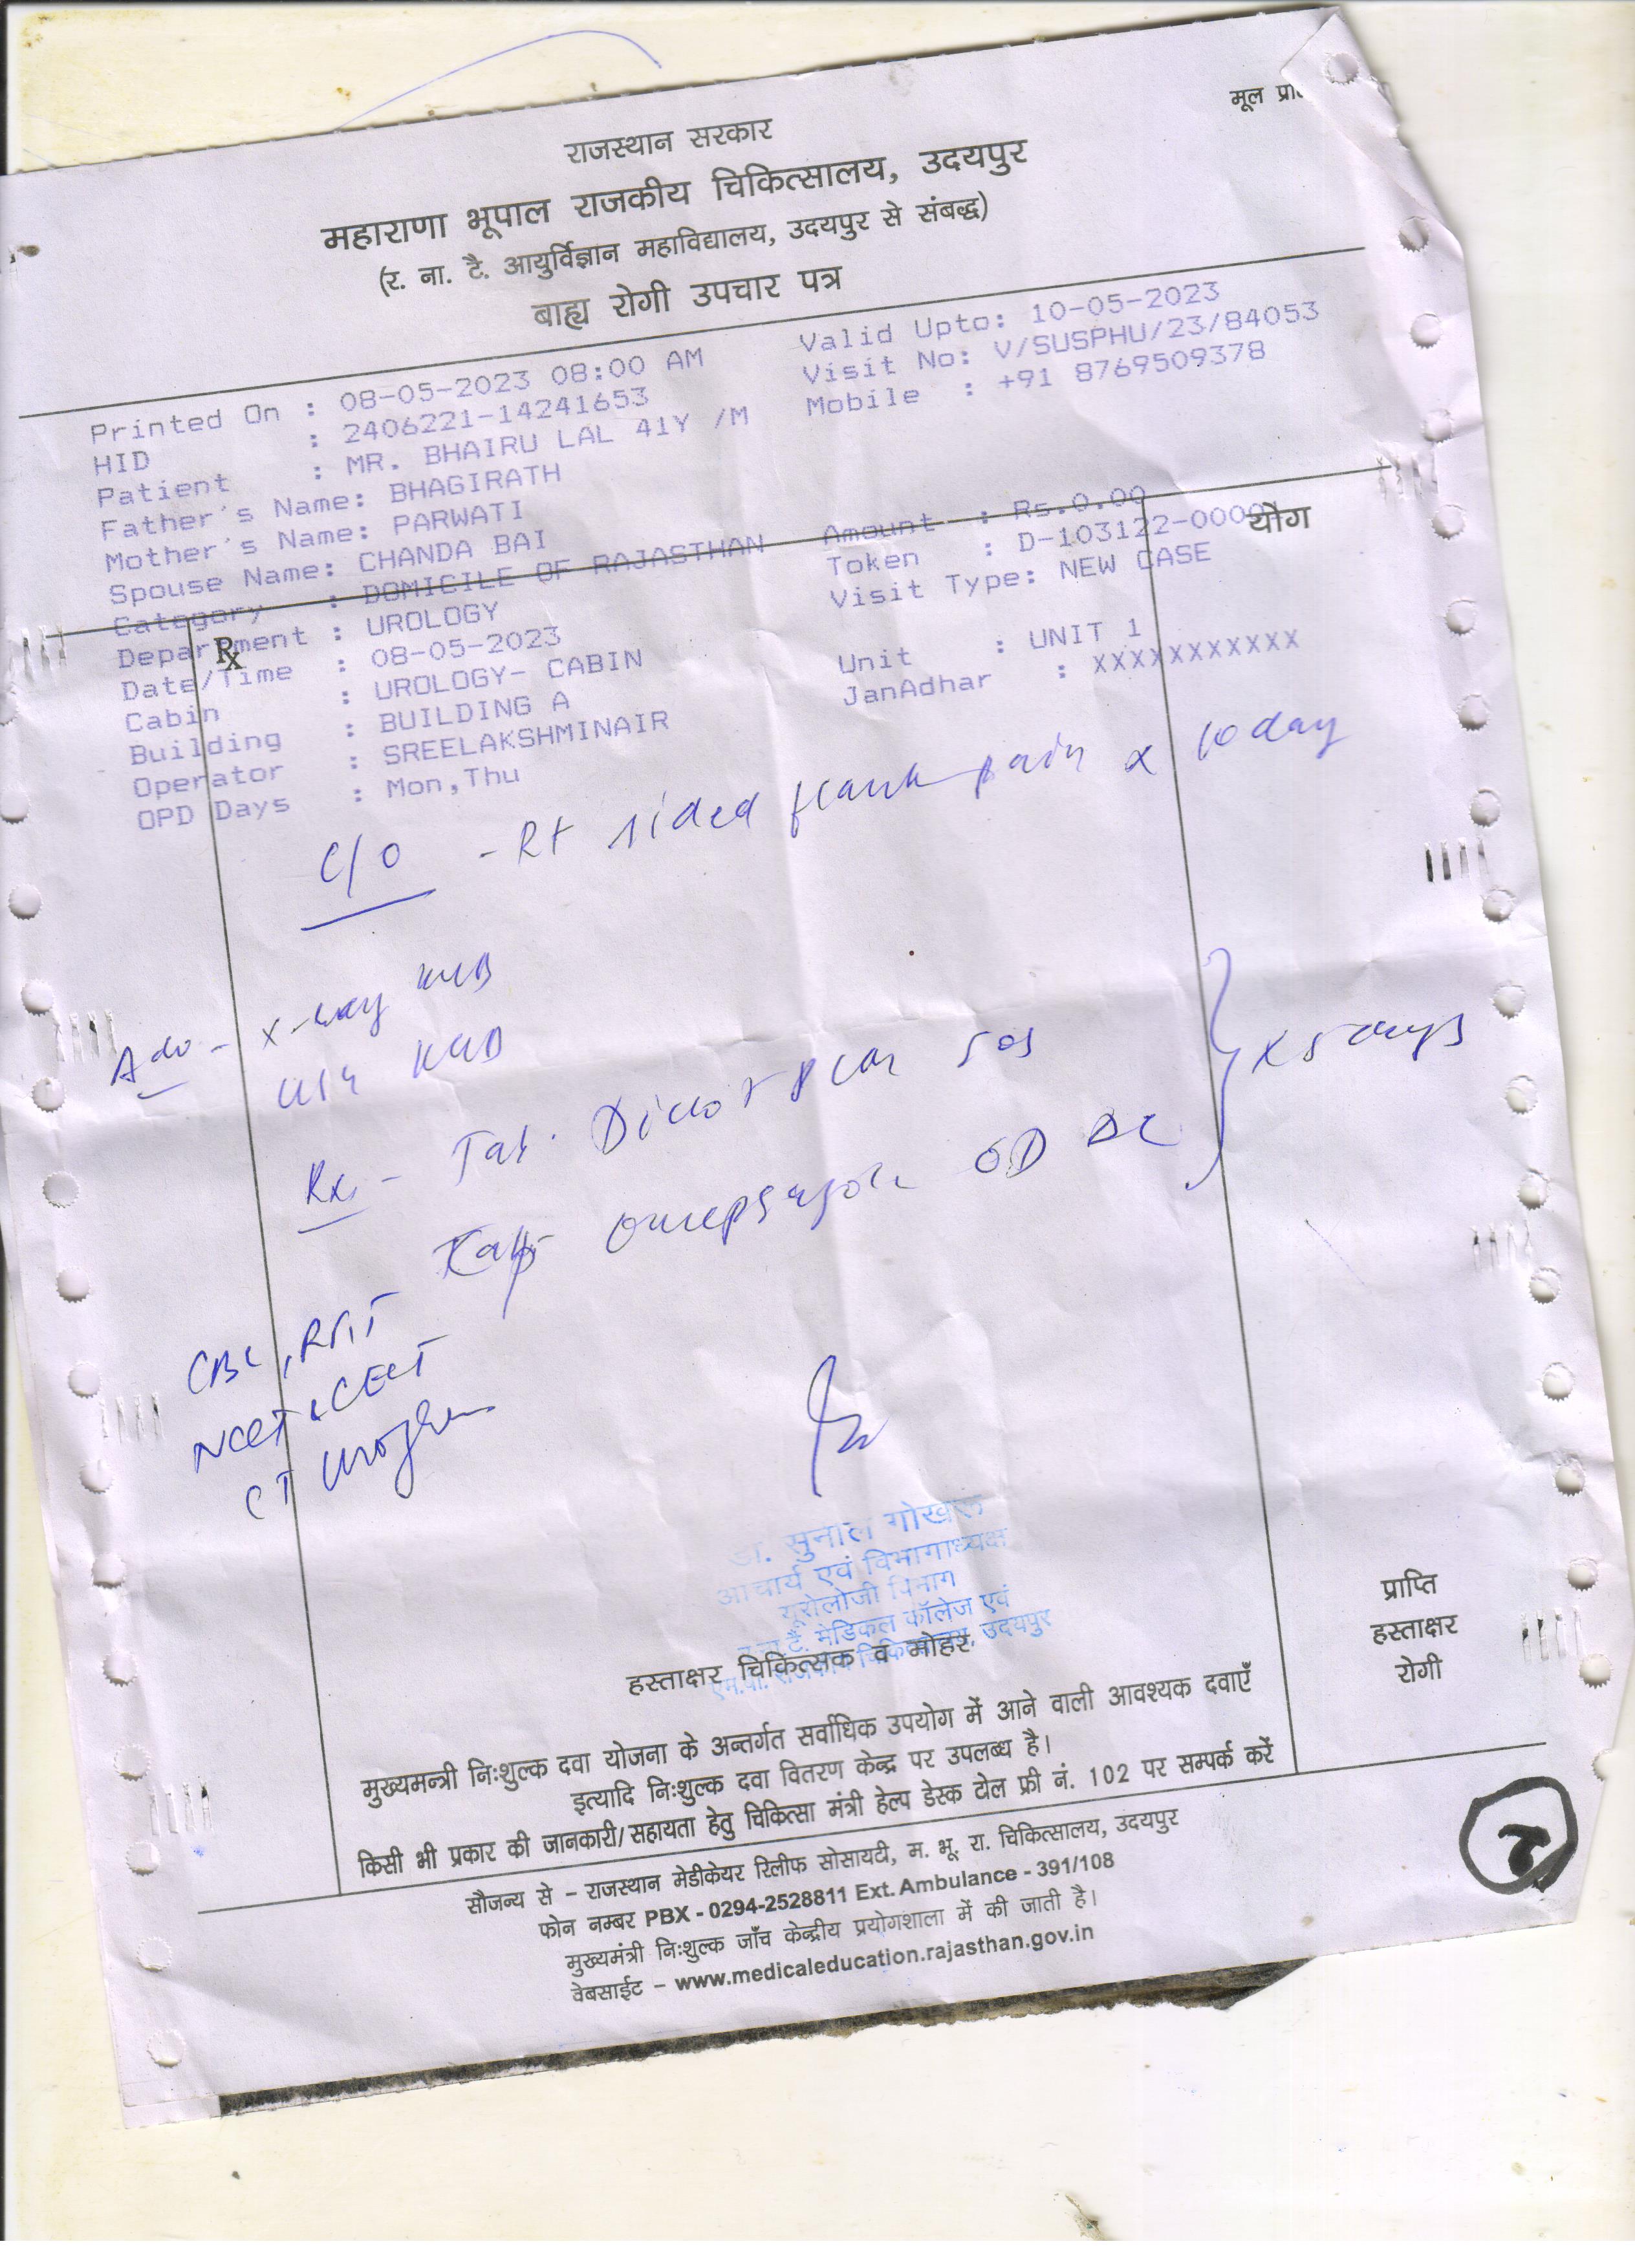 मूल प्रति
राजस्थान सरकार
महाराणा भूपाल राजकीय चिकित्सालय, उदयपुर
(र. ना. टै. आयुर्विज्ञान महाविद्यालय, उदयपुर से संबद्ध)
बाह्य रोगी उपचार पत्र
Printed On : 08-05-2023 08:00 AM Valid Upto: 10-05-2023
HID : 2406221-14241653 Visit No: V/SUSPHU/23/84053
Patient : MR. BHAIRU LAL 41Y /M Mobile : +91 8769509378
Father's Name: BHAGIRATH
Mother's Name: PARWATI
Spouse Name: CHANDA BAI Amount : Rs.0.00
Category : DOMICILE OF RAJASTHAN Token : D-103122-0000 योग
Department : UROLOGY Visit Type: NEW CASE
Rx
Date/Time : 08-05-2023
Cabin : UROLOGY- CABIN Unit : UNIT 1
Building : BUILDING A JanAdhar : XXXXXXXXXXX
Operator : SREELAKSHMINAIR
OPD Days : Mon,Thu
C/O - Rt sided flank pain x 10 day
Adv - X-ray KUB
USG KUB
Rx - Tab. Diclo + para SOS
Cap omeprazole OD AC } x 5 days
CBC, RFT
NCCT & CECT
CT Urogram
डा. सुनील गोखरू
आचार्य एवं विभागाध्यक्ष
यूरोलोजी विभाग
र.ना.टै. मेडिकल कॉलेज एवं
एम.बी. राजकीय चिकित्सालय, उदयपुर
हस्ताक्षर चिकित्सक व मोहर
प्राप्ति
हस्ताक्षर
रोगी
मुख्यमन्त्री निःशुल्क दवा योजना के अन्तर्गत सर्वाधिक उपयोग में आने वाली आवश्यक दवाएँ
इत्यादि निःशुल्क दवा वितरण केन्द्र पर उपलब्ध है।
किसी भी प्रकार की जानकारी/सहायता हेतु चिकित्सा मंत्री हेल्प डेस्क टोल फ्री नं. 102 पर सम्पर्क करें
सौजन्य से – राजस्थान मेडीकेयर रिलीफ सोसायटी, म. भू. रा. चिकित्सालय, उदयपुर
फोन नम्बर PBX - 0294-2528811 Ext. Ambulance - 391/108
मुख्यमंत्री निःशुल्क जाँच केन्द्रीय प्रयोगशाला में की जाती है।
वेबसाईट – www.medicaleducation.rajasthan.gov.in